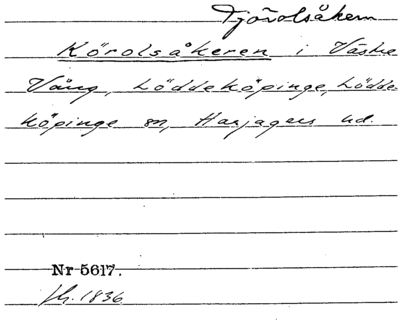 Tjörolsåkern
Körolsåkeren i Västra
Vång, Löddeköpinge, Lödde-
köpinge sn, Harjagers hd.
Nr 5617.
fh. 1836